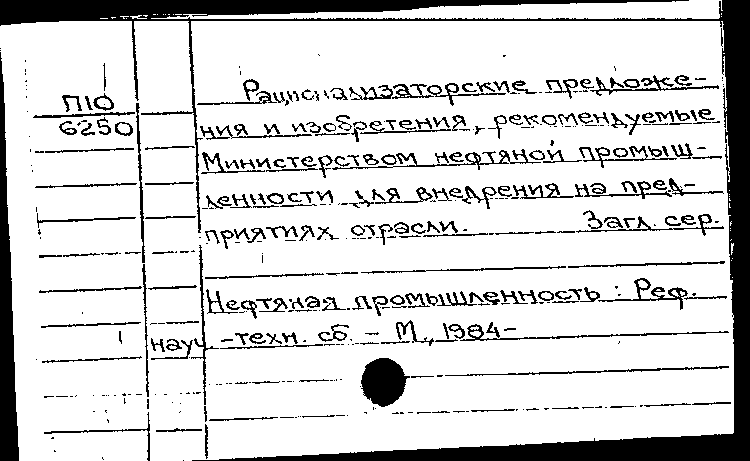 П10
6250
Рационализаторские предложе-
ния и изобретения, рекомендуемые
Министерством нефтяной промыш-
ленности для внедрения на пред-
приятиях отрасли. Загл. сер.
Нефтяная промышленность : Реф.
науч. -техн. сб. - М., 1984-